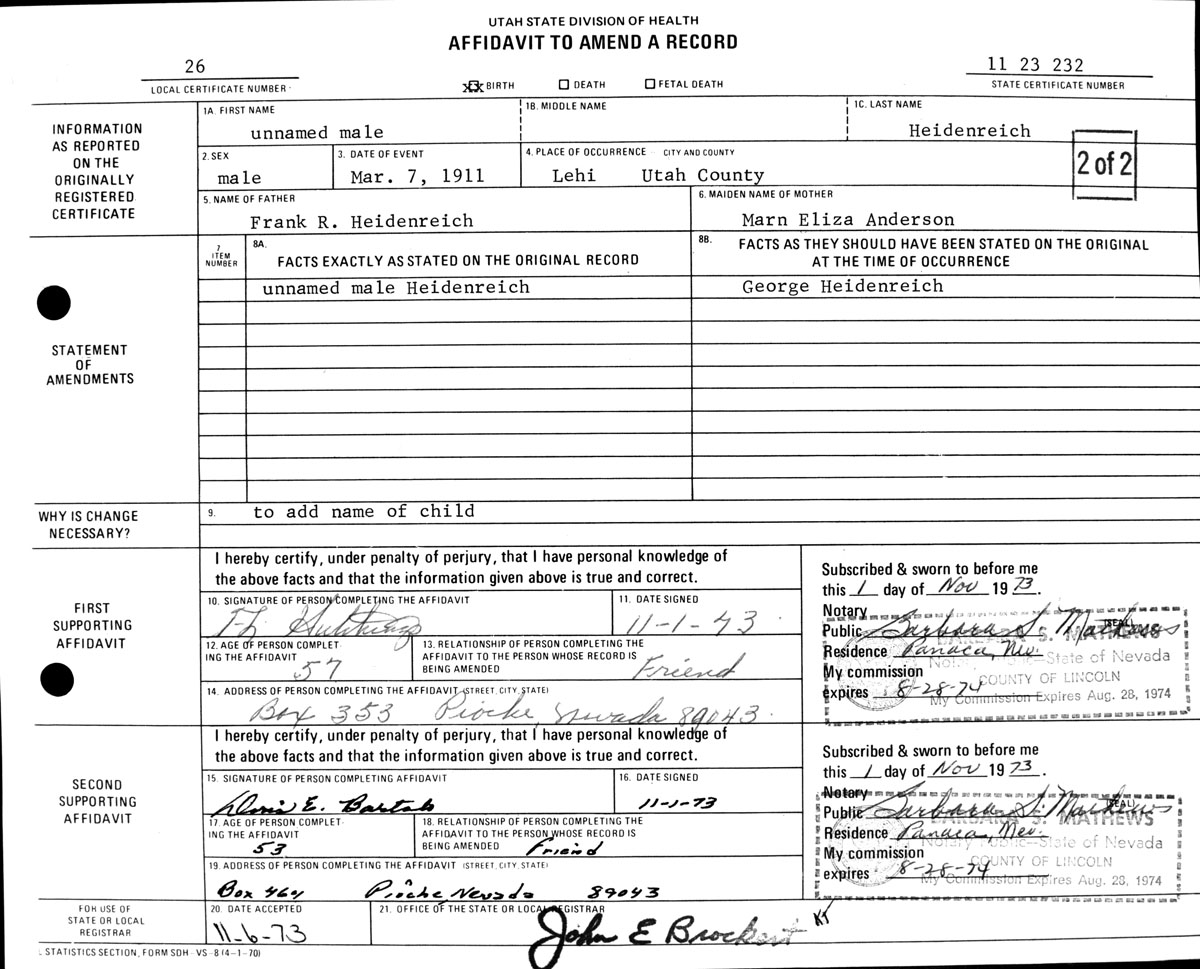 UTAH STATE DIVISION OF HEALTH
AFFIDAVIT TO AMEND A RECORD
26
LOCAL CERTIFICATE NUMBER
XX BIRTH
DEATH
FETAL DEATH
11 23 232
STATE CERTIFICATE NUMBER
INFORMATION
AS REPORTED
ON THE
ORIGINALLY
REGISTERED
CERTIFICATE
1A. FIRST NAME
unnamed male
1B. MIDDLE NAME
1C. LAST NAME
Heidenreich
2. SEX
male
3. DATE OF EVENT
Mar. 7, 1911
4. PLACE OF OCCURRENCE - CITY AND COUNTY
Lehi Utah County
2 of 2
5. NAME OF FATHER
Frank R. Heidenreich
6. MAIDEN NAME OF MOTHER
Marn Eliza Anderson
STATEMENT
OF
AMENDMENTS
7
ITEM
NUMBER
8A.
FACTS EXACTLY AS STATED ON THE ORIGINAL RECORD
8B. FACTS AS THEY SHOULD HAVE BEEN STATED ON THE ORIGINAL
AT THE TIME OF OCCURRENCE
unnamed male Heidenreich
George Heidenreich
WHY IS CHANGE
NECESSARY?
9. to add name of child
FIRST
SUPPORTING
AFFIDAVIT
I hereby certify, under penalty of perjury, that I have personal knowledge of
the above facts and that the information given above is true and correct.
10. SIGNATURE OF PERSON COMPLETING THE AFFIDAVIT
Hutchings
11. DATE SIGNED
11-1-73
12. AGE OF PERSON COMPLET-
ING THE AFFIDAVIT
57
13. RELATIONSHIP OF PERSON COMPLETING THE
AFFIDAVIT TO THE PERSON WHOSE RECORD IS
BEING AMENDED
Friend
14. ADDRESS OF PERSON COMPLETING THE AFFIDAVIT (STREET, CITY, STATE)
Box 353 Pioche, Nevada 89043
Subscribed & sworn to before me
this 1 day of Nov 19 73.
Notary
Public Barbara S. Mathews
(SEAL)
BARBARA S. MATHEWS
Residence Panaca, Nev.
Notary Public—State of Nevada
My commission
COUNTY OF LINCOLN
expires 8-28-74
My Commission Expires Aug. 28, 1974
SECOND
SUPPORTING
AFFIDAVIT
I hereby certify, under penalty of perjury, that I have personal knowledge of
the above facts and that the information given above is true and correct.
15. SIGNATURE OF PERSON COMPLETING AFFIDAVIT
E.
16. DATE SIGNED
11-1-73
17. AGE OF PERSON COMPLET-
ING THE AFFIDAVIT
53
18. RELATIONSHIP OF PERSON COMPLETING THE
AFFIDAVIT TO THE PERSON WHOSE RECORD IS
BEING AMENDED
Friend
19. ADDRESS OF PERSON COMPLETING THE AFFIDAVIT (STREET, CITY, STATE)
Box 464 Pioche Nevada 89043
Subscribed & sworn to before me
this 1 day of Nov 19 73.
Notary
Public Barbara S. Mathews
(SEAL)
BARBARA S. MATHEWS
Residence Panaca, Nev.
Notary Public—State of Nevada
My commission
COUNTY OF LINCOLN
expires 8-28-74
My Commission Expires Aug. 28, 1974
FOR USE OF
STATE OR LOCAL
REGISTRAR
20. DATE ACCEPTED
11-6-73
21. OFFICE OF THE STATE OR LOCAL REGISTRAR
John E Brockert KT
L STATISTICS SECTION, FORM SDH-VS-8 (4-1-70)